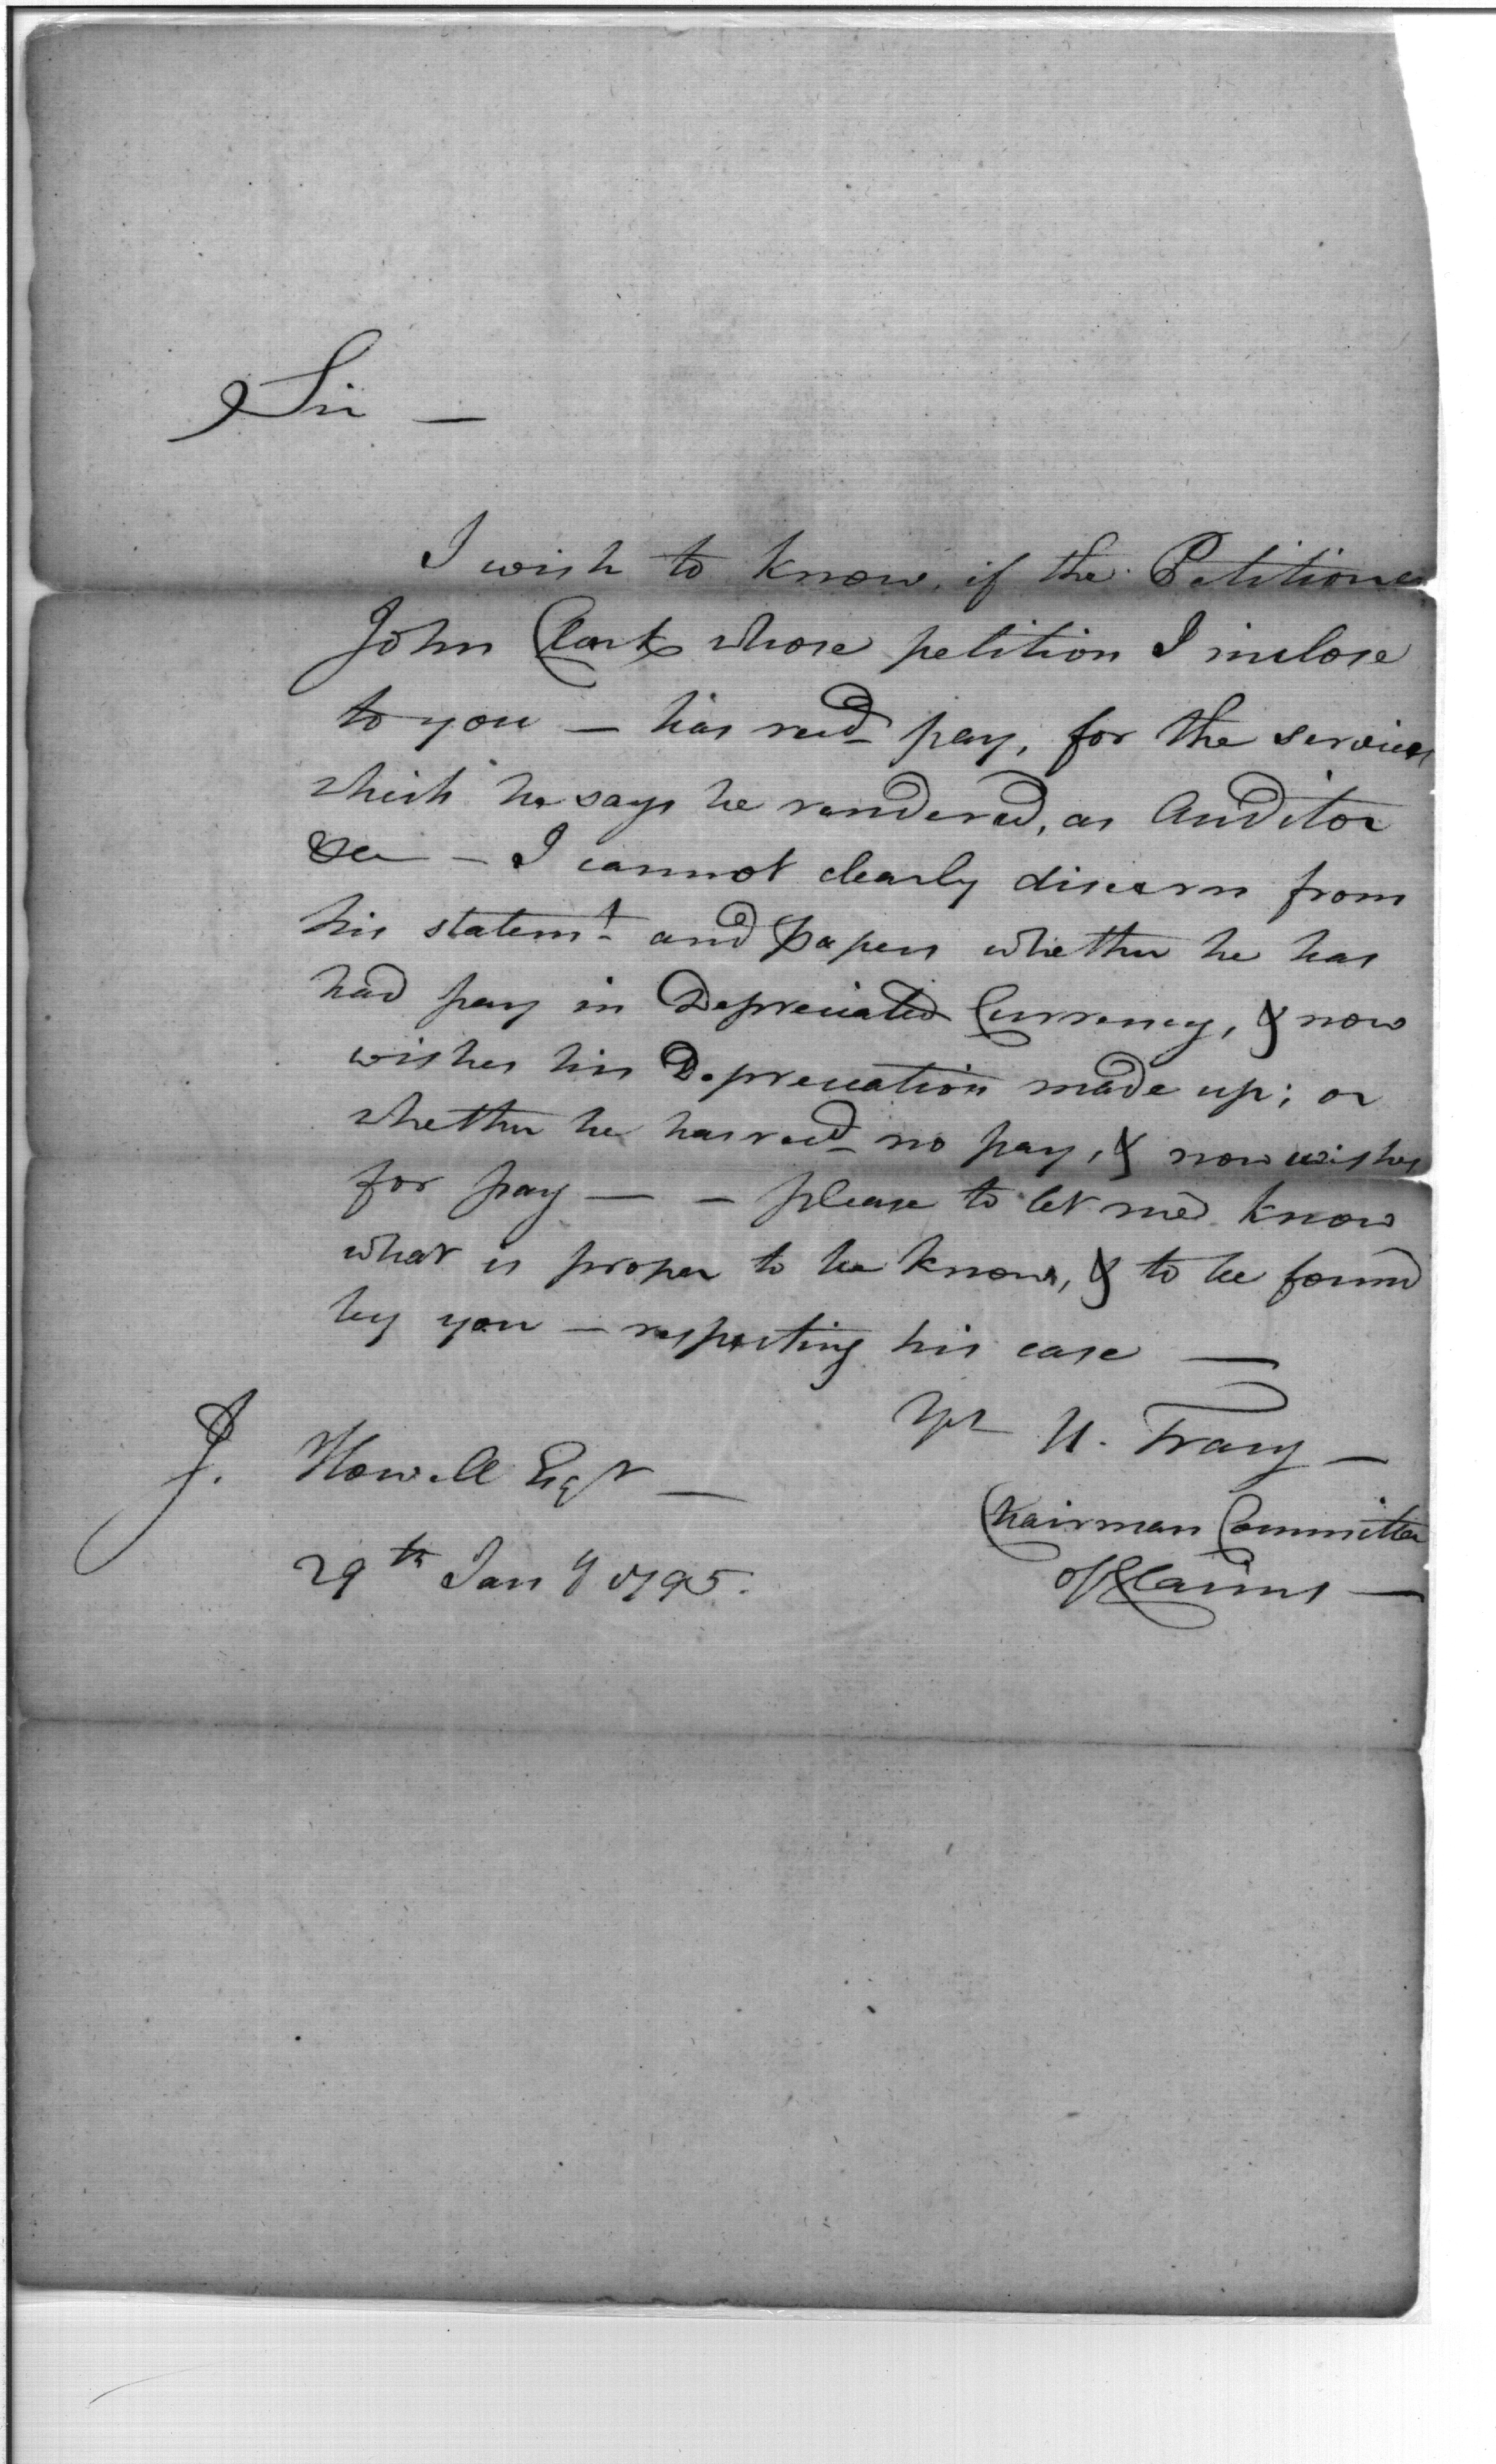 Sir —
I wish to know, if the Petitioner
John Clark whose petition I inclose
to you — has recd pay, for the services
which he says he rendered, as Auditor
&c — I cannot clearly discern from
his statemt and papers whether he has
had pay in Depreciated Currency, & now
wishes his Depreciation made up; or
whether he has recd no pay, & now wishes
for pay — — please to let me know
what is proper to be known, & to be found
by you — respecting his case —
Yrs U. Tracy —
J. Howell Esqr —
Chairman Committee
of Claims —
29th Jany 1795.